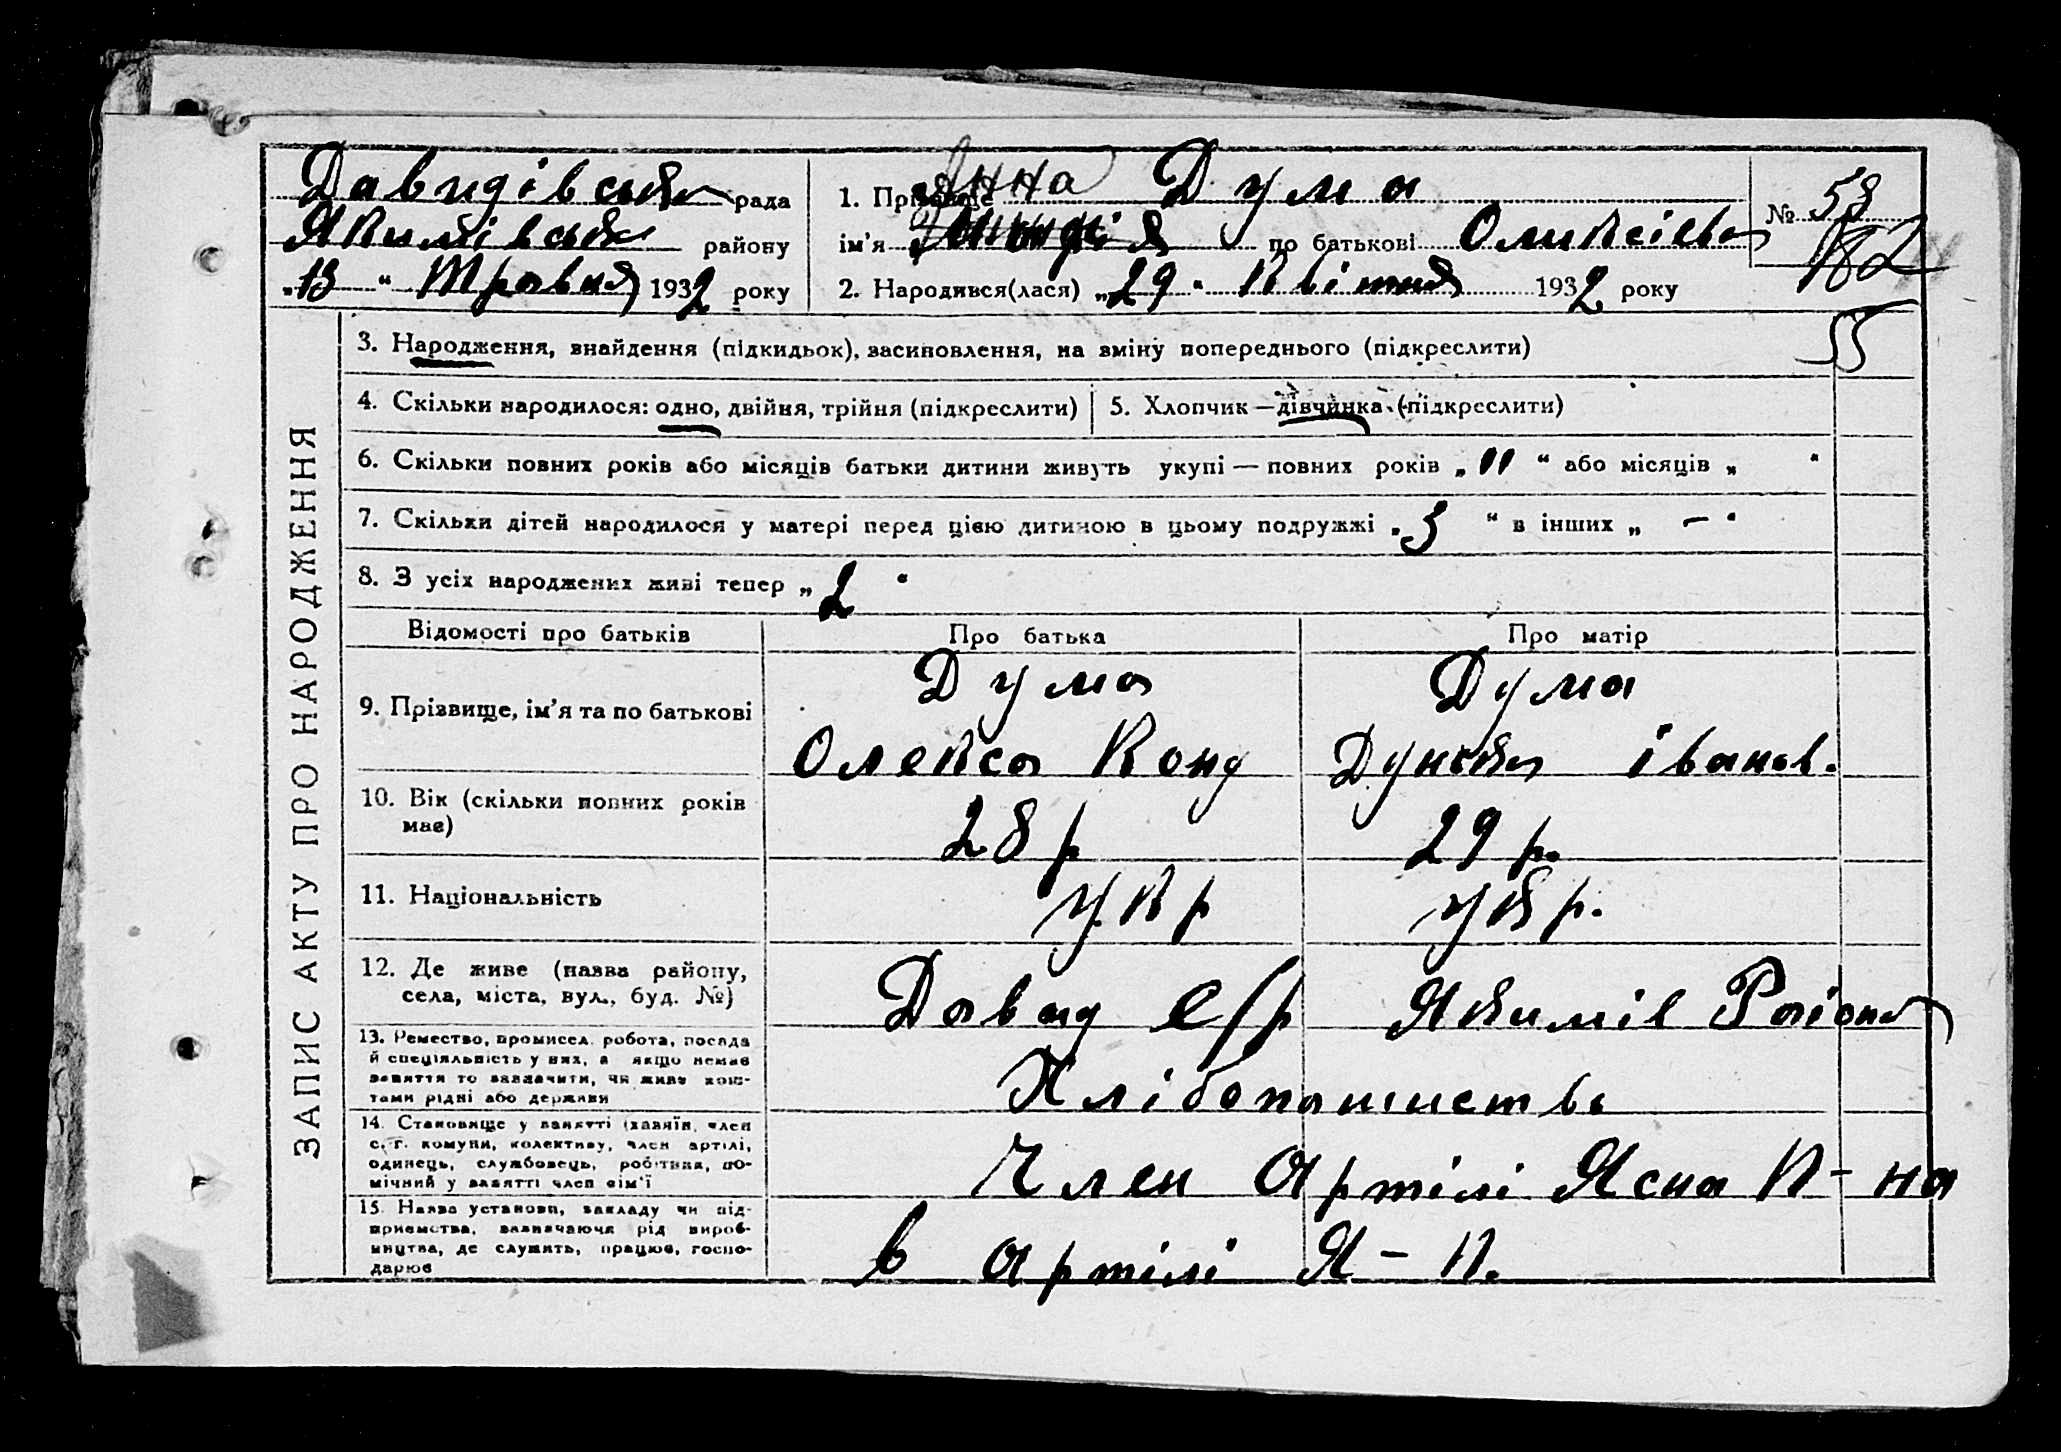 Давидівська рада
Якимівська району
„13" Травня 1932 року
Анна
1. Прізвище Дума
ім'я по батькові Оликсіевна
2. Народився(лася) „29" Квітня 1932 року
№ 53
182
55
ЗАПИС АКТУ ПРО НАРОДЖЕННЯ
3. Народження, знайдення (підкидьок), засиновлення, на зміну попереднього (підкреслити)
4. Скільки народилося: одно, двійня, трійня (підкреслити)
5. Хлопчик — дівчинка (підкреслити)
6. Скільки повних років або місяців батьки дитини живуть укупі — повних років „11" або місяців „ "
7. Скільки дітей народилося у матері перед цією дитиною в цьому подружжі „3" в інших „ — "
8. З усіх народжених живі тепер „2"
Відомості про батьків
Про батька
Про матір
9. Прізвище, ім'я та по батькові
Дума
Олекса Конд
Дума
Дунька іванов.
10. Вік (скільки повних років
має)
28 р
29 р.
11. Національність
укр
укр.
12. Де живе (назва району,
села, міста, вул., буд. №)
Давид с/р Якимів Района
13. Ремество, промисел, робота, посада
й спеціяльність у них, а якщо немає
заняття то зазначити, чи живе кош-
тами рідні або держави
Хлібопашиство
14. Становище у занятті (хазяїн, член
с.-г. комуни, колективу, член артілі,
одинець, службовець, робітник, по-
мічний у занятті член сім'ї
Член Артілі Ясна П-на
15. Назва установи, закладу чи під-
приємства, зазначаючи рід вироб-
ництва, де служить, працює, госпо-
дарює
в артілі Я - П.